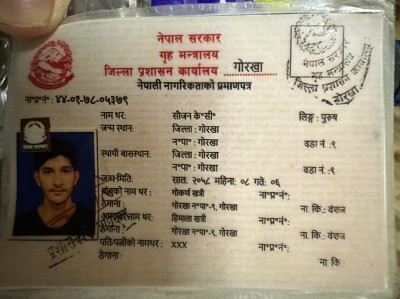 नेपाल सरकार
गृह मन्त्रालय
जिल्ला प्रशासन कार्यालय गोरखा
नेपाली नागरिकताको प्रमाणपत्र
ना॰प्र॰नं॰: ४४-०१-७८-०५३७९
नाम थर: सौजन के॰सी॰ लिङ्ग: पुरुष
जन्म स्थान: जिल्ला: गोरखा
न॰पा॰: गोरखा वडा नं: ९
स्थायी बासस्थान: जिल्ला: गोरखा
न॰पा॰: गोरखा वडा नं: ९
जन्म मिति: साल: २०५८ महिना: ०८ गते: ०६
बाबुको नाम थर: गोकर्ण खत्री ना॰प्र॰नं॰:
ठेगाना: गोरखा न॰पा॰-९, गोरखा ना. कि.: वंशज
आमाको नाम थर: हिमाला खत्री ना॰प्र॰नं॰:
ठेगाना: गोरखा न॰पा॰-९, गोरखा ना. कि.: वंशज
पति/पत्नीको नाम थर: XXX ना॰प्र॰नं॰:
ठेगाना: ना कि:
नेपाल सरकार
गृह मन्त्रालय
जिल्ला प्रशासन कार्यालय
गोरखा
नेपाल सरकार